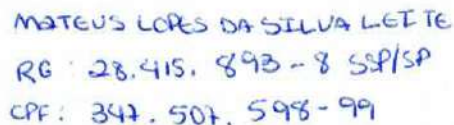 MATEUS LOPES DA SILVA LEITE
RG: 28.415.893-8 SSP/SP
CPF: 347.507.598-99